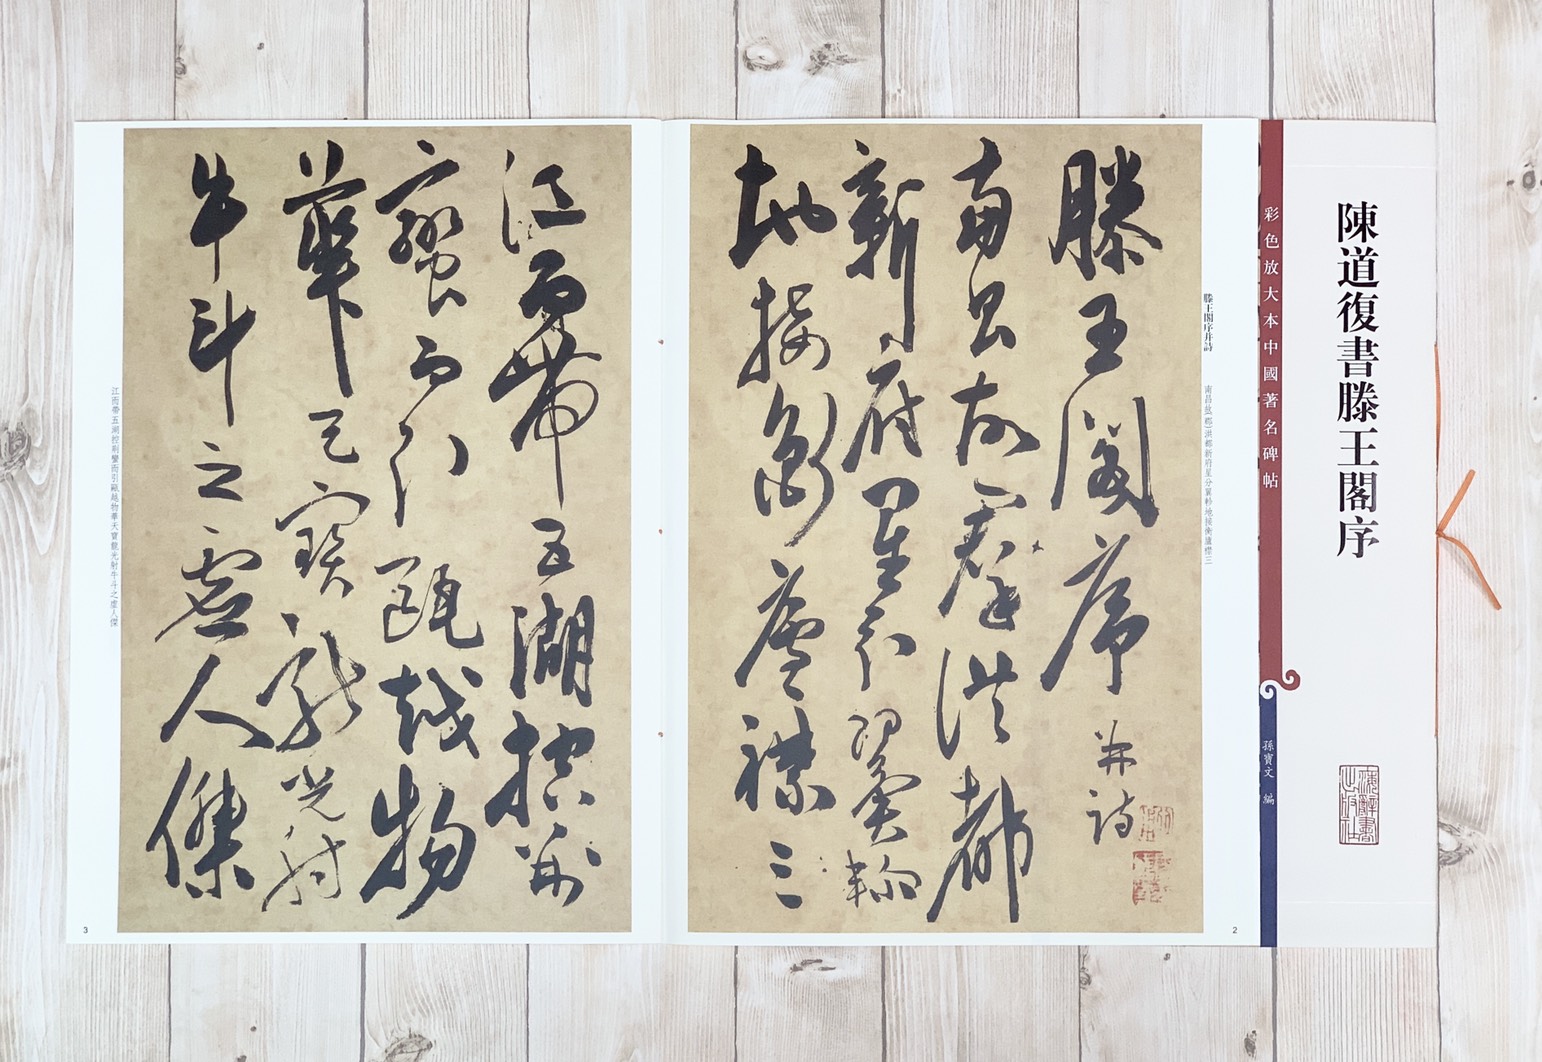 陳道復書滕王閣序
彩色放大本中國著名碑帖
孫寶文 編
滕王閣序并詩
南昌故(郡)洪都新府星分翼軫地接衡廬襟三
滕王閣序并詩
南昌故羣洪都
新府星分翼軫
地接衡廬襟三
2
江而帶五湖控荊
蠻而引甌越物
華天寶龍光射
牛斗之虛人傑
江而帶五湖控荊蠻而引甌越物華天寶龍光射牛斗之虛人傑
3